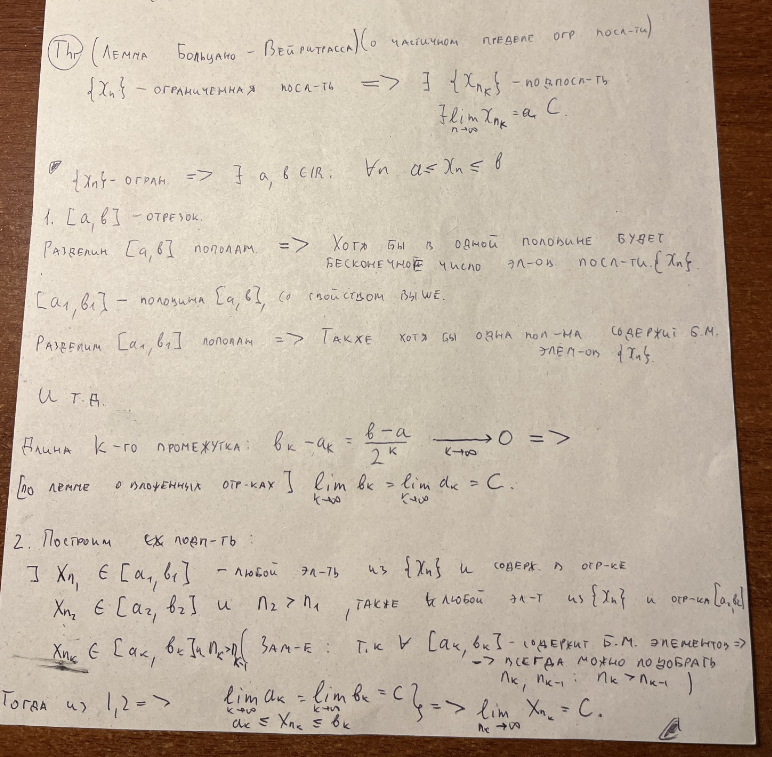 Thr (Лемма Больцано - Вейрштрасса) (о частичном пределе огр посл-ти)
{xn} - ограниченная посл-ть => ∃ {xnk} - подпосл-ть
∃ lim xnk = C.
n→∞
{xn} - огран. => ∃ a, b ∈ ℝ: ∀n a ≤ xn ≤ b
1. [a, b] - отрезок.
Разделим [a, b] пополам => Хотя бы в одной половине будет
бесконечное число эл-ов посл-ти {xn}.
[a1, b1] - половина [a, b], со свойством выше.
Разделим [a1, b1] пополам => Также хотя бы одна пол-на содержит б.м.
элем-ов {xn}.
И т.д.
Длина k-го промежутка: bk - ak = (b-a)/2^k → 0 =>
k→∞
[по лемме о вложенных отр-ках] lim bk = lim ak = C.
k→∞ k→∞
2. Построим подп-ть:
∃ xn1 ∈ [a1, b1] - любой эл-ть из {xn} и содерж. в отр-ке
xn2 ∈ [a2, b2] и n2 > n1, также любой эл-т из {xn} и отр-ка [a2, b2]
xnk ∈ [ak, bk] и nk > nk-1 (Зам-е: т.к ∀ [ak, bk] - содержит б.м. элементов =>
-> всегда можно подобрать
nk, nk-1: nk > nk-1)
Тогда из 1,2 => lim ak = lim bk = C } => lim xnk = C.
k→∞ k→∞ nk→∞
ak ≤ xnk ≤ bk